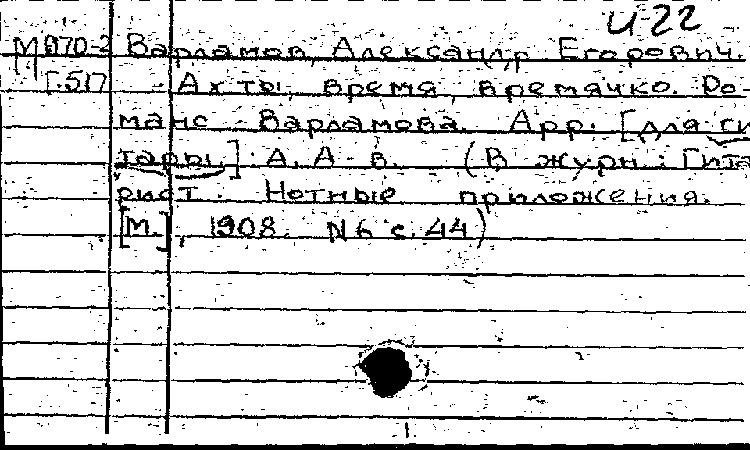 И-22
М 070-2 Варламов, Александр Егорович.
Г.517 Ах ты, время, времячко. Ро-
манс Варламова. Арр. [для ги
тары.] А. А-в. (В журн.: Гита
рист. Нотные приложения.
[М.], 1908. N 6 с. 44)